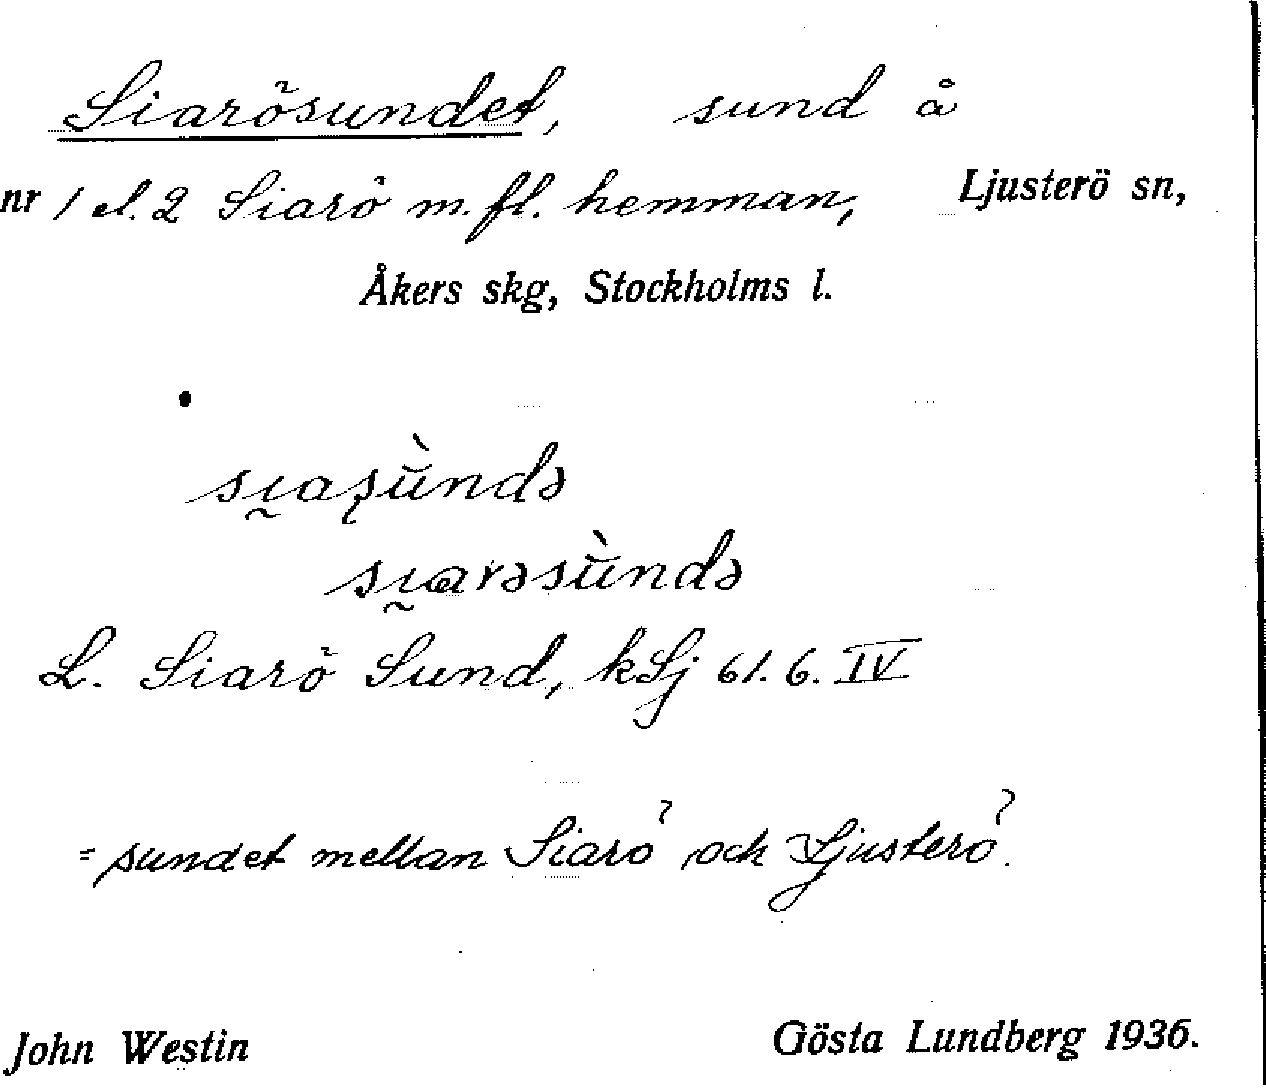 Siarösundet, sund å
nr 1 el. 2 Siarö m. fl. hemman, Ljusterö sn,
Åkers skg, Stockholms l.
L. Siarö Sund, kLj 61. 6. IV
= sundet mellan Siarö och Ljusterö.
John Westin Gösta Lundberg 1936.